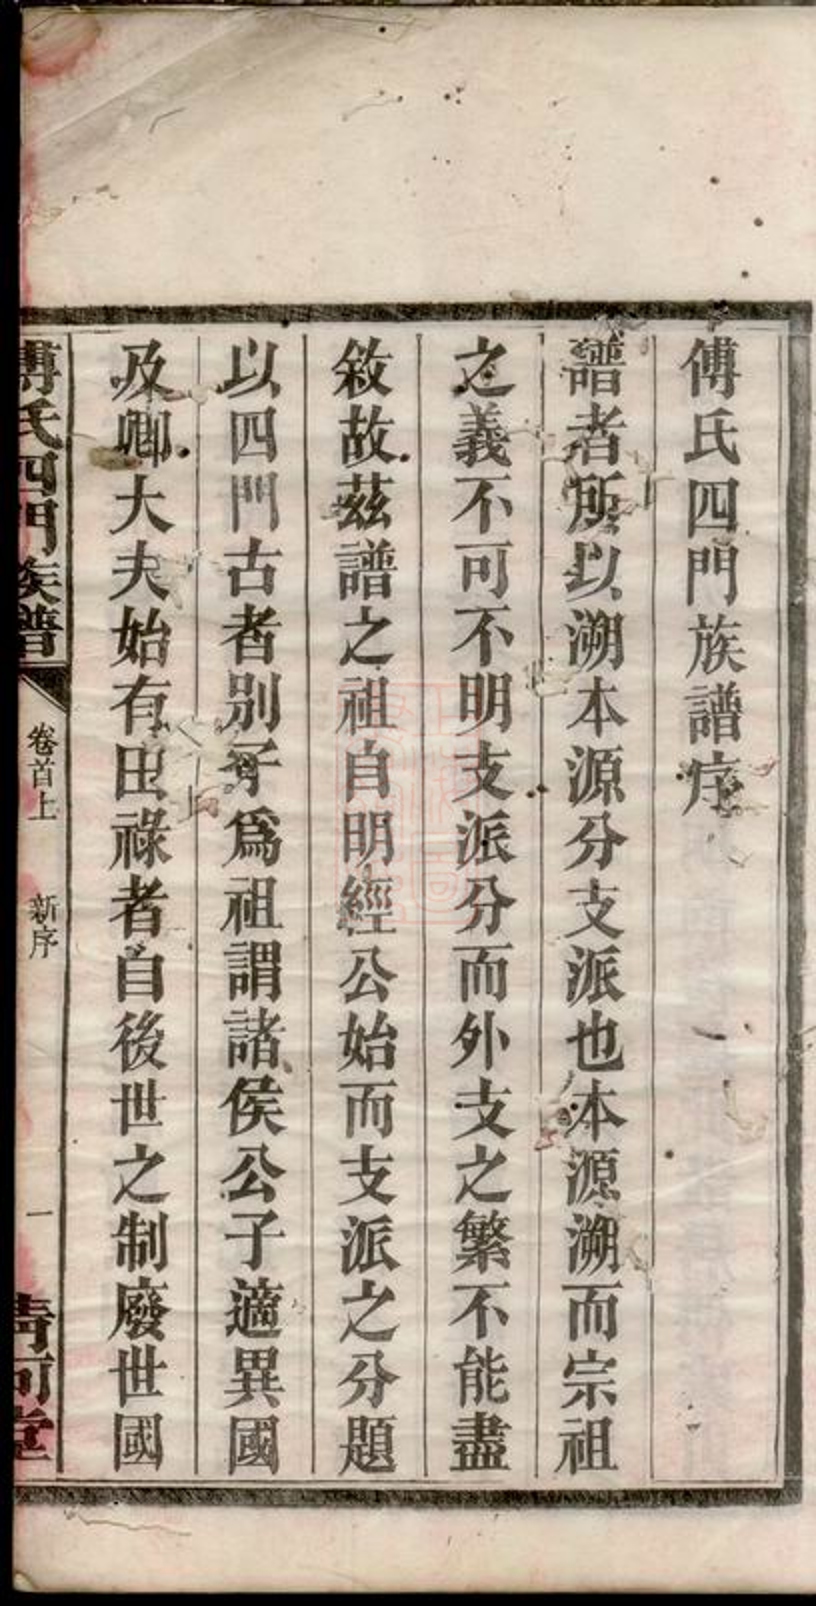 傅氏四門族譜序
譜者所以溯本源分支派也本源溯而宗祖
之義不可不明支派分而外支之繁不能盡
敘故茲譜之祖自明經公始而支派之分題
以四門古者別子爲祖謂諸侯公子適異國
及卿大夫始有田祿者自後世之制廢世國
傅氏四門族譜
卷首上
新序
一
清河堂